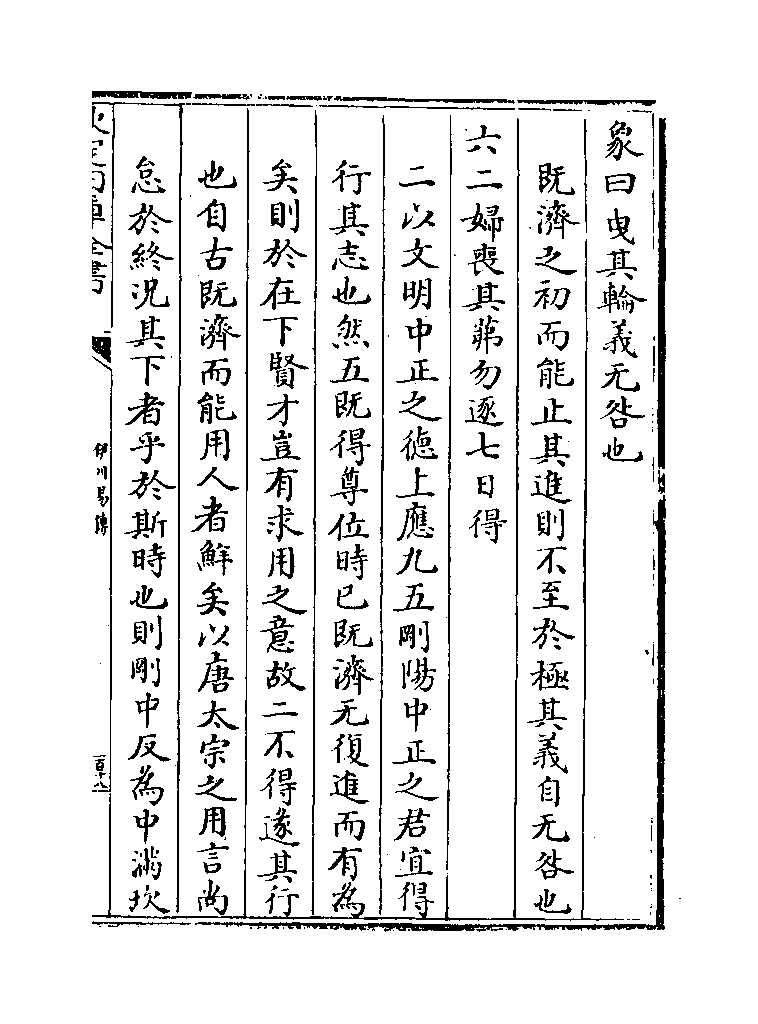 象曰曳其輪義无咎也
既濟之初而能止其進則不至於極其義自无咎也
六二婦喪其茀勿逐七日得
二以文明中正之德上應九五剛陽中正之君宜得
行其志也然五既得尊位時已既濟无復進而有為
矣則於在下賢才豈有求用之意故二不得遂其行
也自古既濟而能用人者鮮矣以唐太宗之用言尚
怠於終況其下者乎於斯時也則剛中反為中滿坎
欽定四庫全書
伊川易傳
百十八